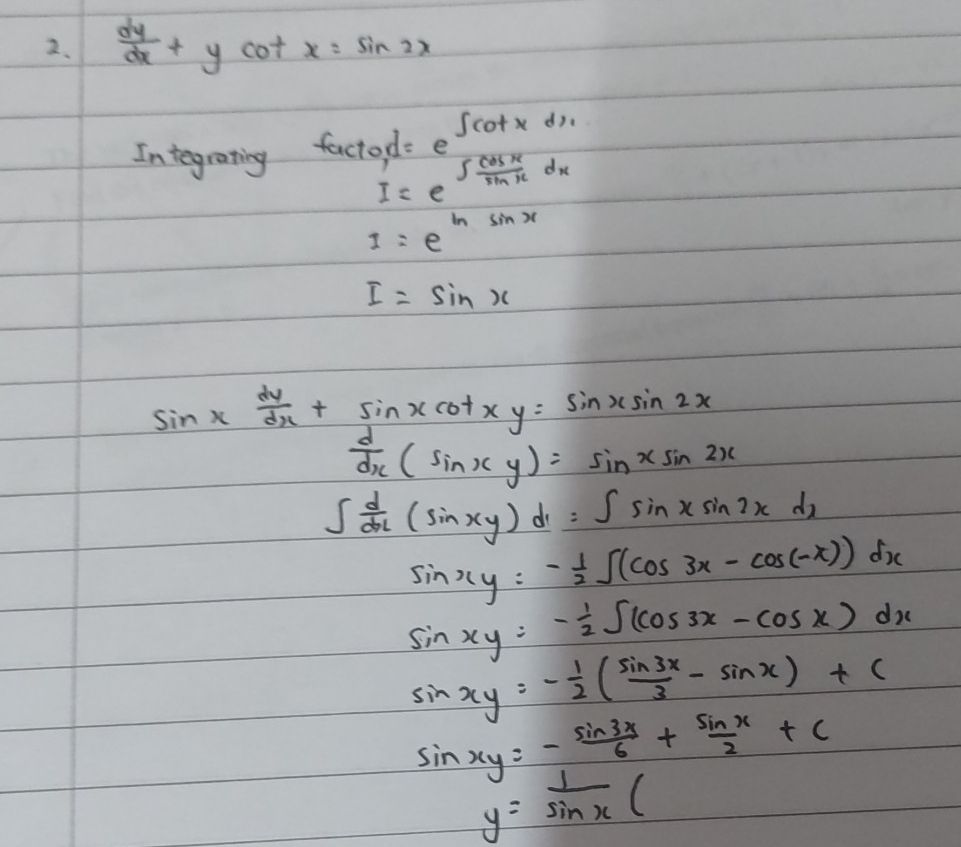 2. dy/dx + y cot x = sin 2x
Integrating factor = e^∫cot x dx
I = e^∫ cos x/sin x dx
I = e^ln sin x
I = sin x
sin x dy/dx + sin x cot x y = sin x sin 2x
d/dx (sin x y) = sin x sin 2x
∫ d/dx (sin x y) d = ∫ sin x sin 2x dx
sin x y = -1/2 ∫(cos 3x - cos(-x)) dx
sin x y = -1/2 ∫(cos 3x - cos x) dx
sin x y = -1/2 (sin 3x/3 - sin x) + C
sin x y = - sin 3x/6 + sin x/2 + C
y = 1/sin x (